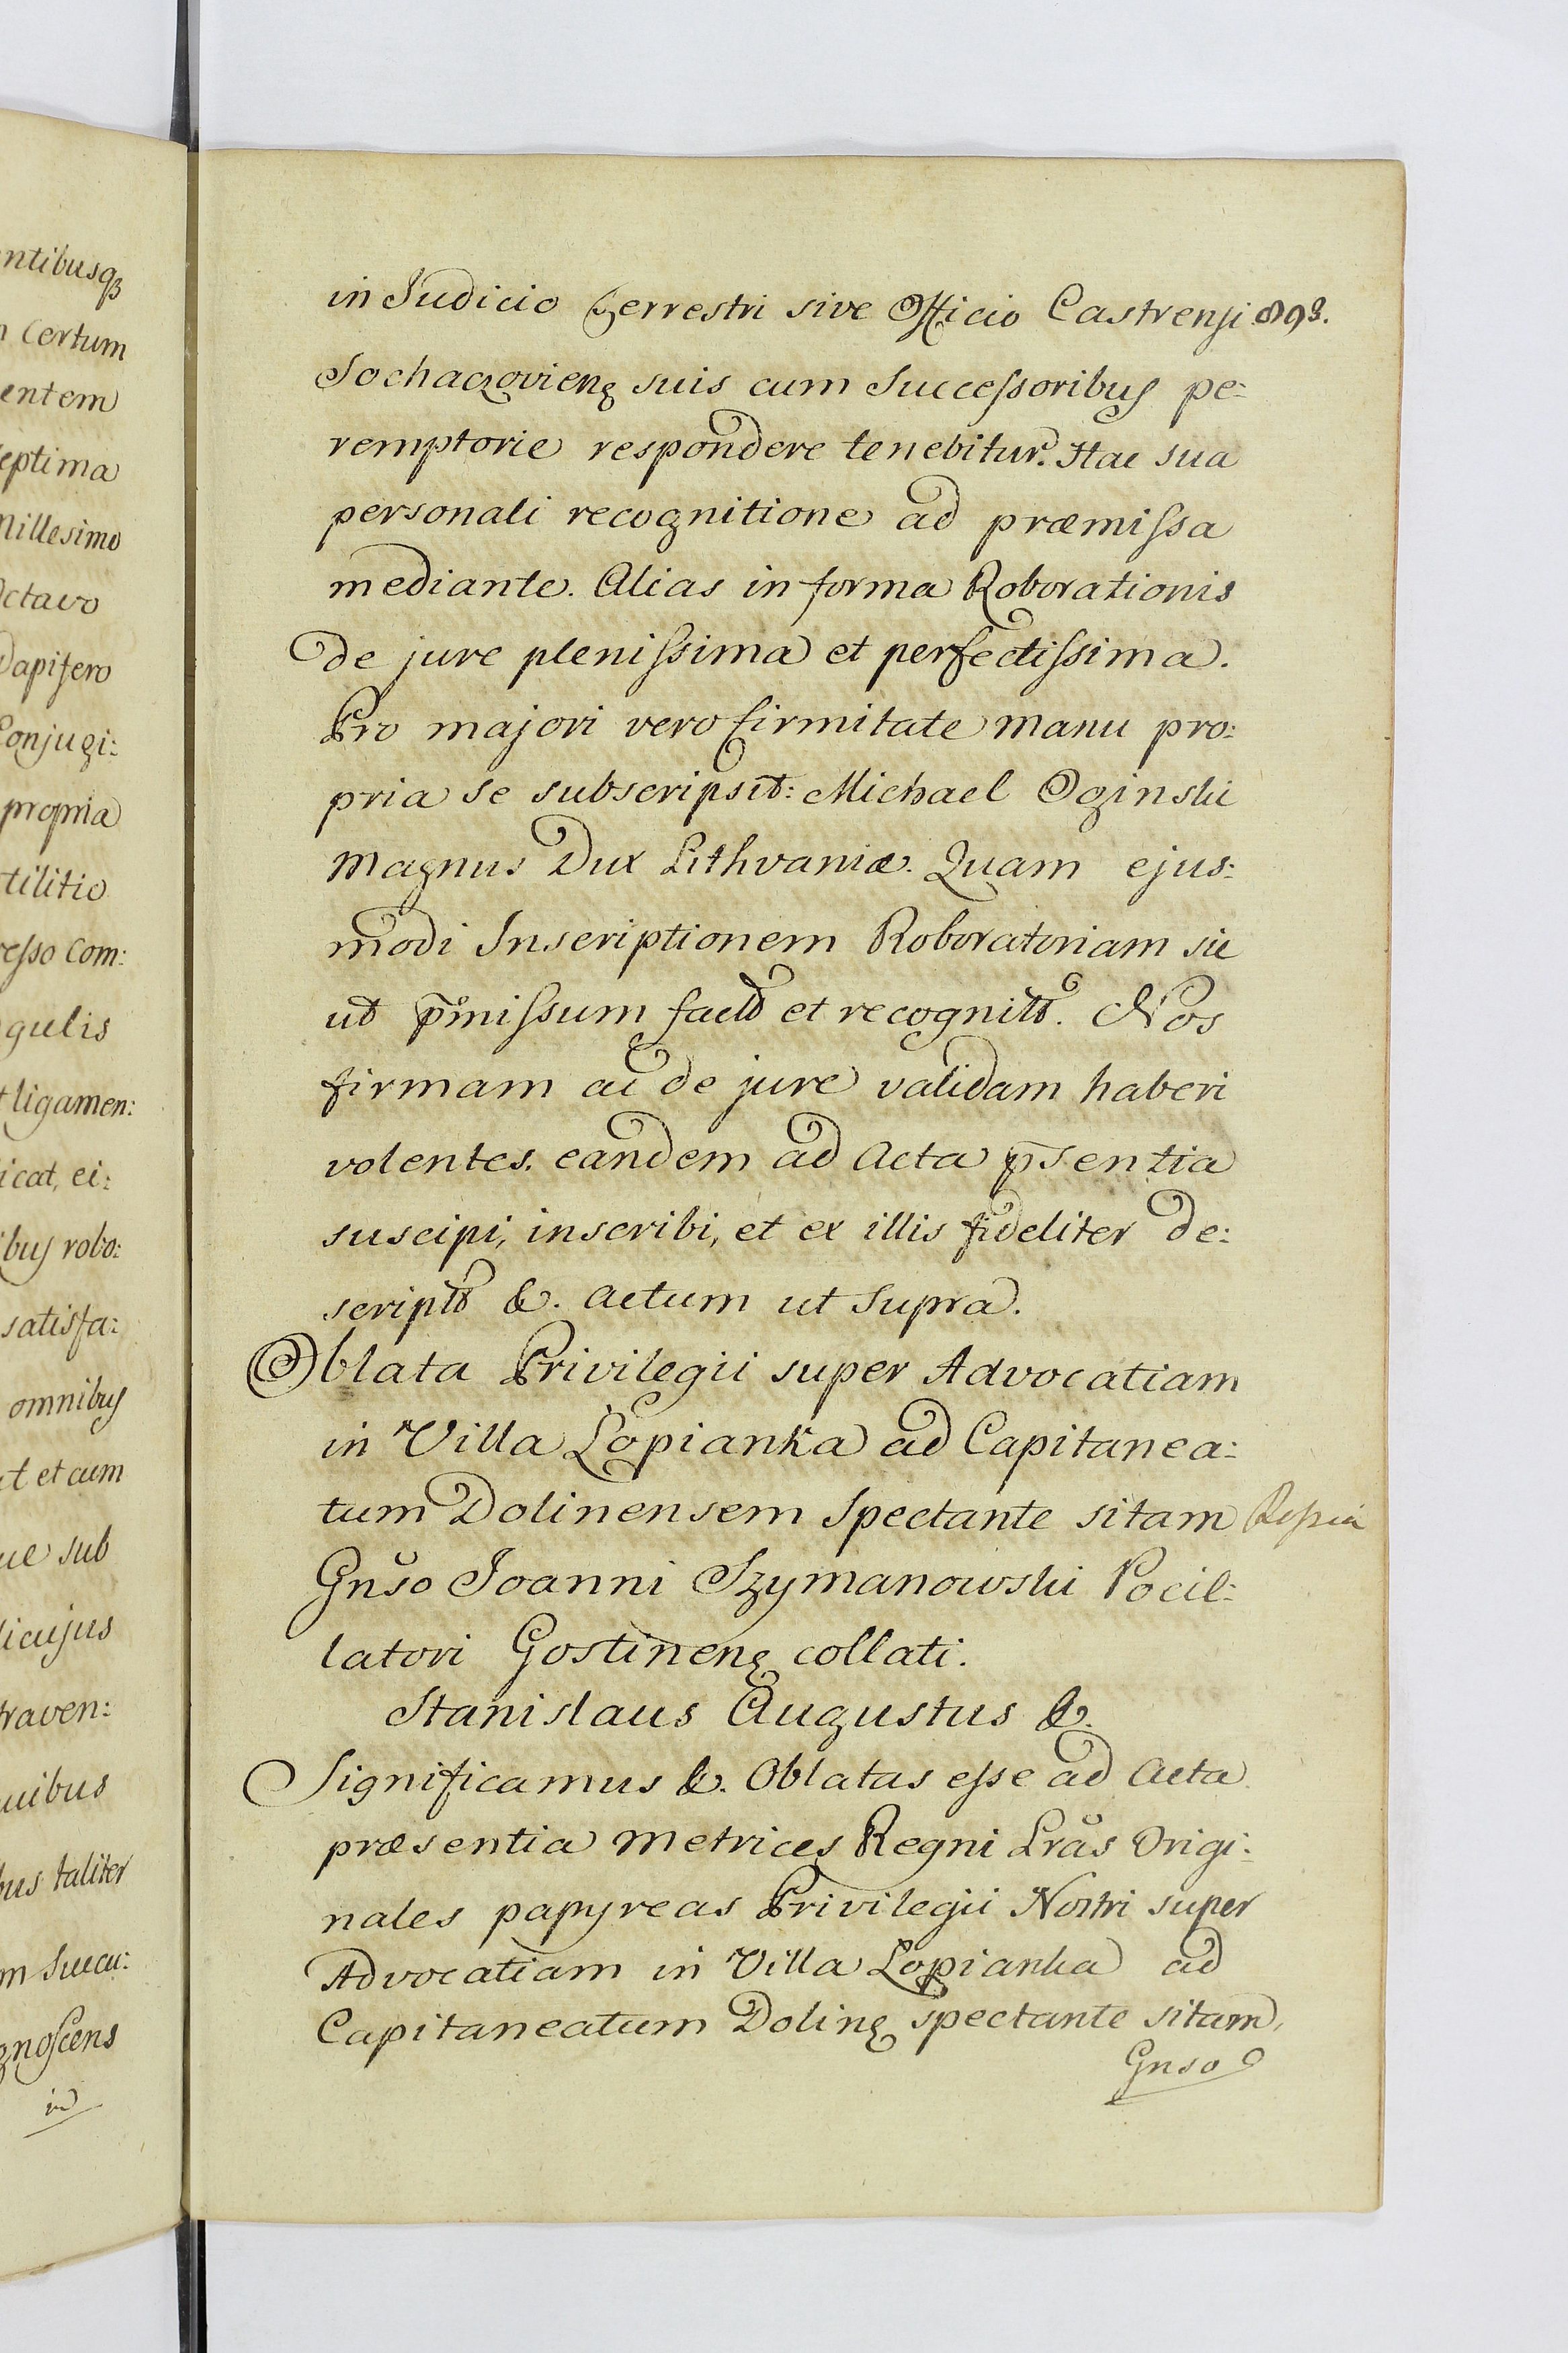 ntibusq3
n Certum
entem
septima
Millesimo
Octavo
Dapifero
Conjugi:
propria
tilitio
resso Com:
gulis
ligamen:
icat, ei:
ibus robo:
satisfa:
omnibus
et cum
sub
licujus
traven:
uibus
bus taliter
m Succu:
gnoscens
in
in Judicio Terrestri sive Officio Castrensi 898.
Sochaczovieng suis cum Successoribus pe:
remptorie respondere tenebitur. Hac sua
personali recognitione ad præmissa
mediante. Alias in forma Roborationis
de jure plenissima et perfectissima.
Pro majori vero firmitate manu pro:
pria se subscripsit: Michael Oginski
Magnus Dux Lithvaniæ. Quam ejus:
modi Inscriptionem Roboratoriam sic
ut p̄missum fact et recognit. Nos
firmam ac de jure validam haberi
volentes. eandem ad Acta p̄sentia
suscipi, inscribi, et ex illis fideliter de:
script &. Actum ut Supra.
Oblata Privilegii super Advocatiam
in Villa Łopianka ad Capitanea:
tum Dolinensem Spectante sitam
Gnso Joanni Szymanowski Pocil:
latori Gostineng collati.
Stanislaus Augustus &.
Significamus &. Oblatas esse ad Acta
præsentia Metrices Regni Lras Origi:
nales papyreas Privilegii Nostri super
Advocatiam in Villa Łopianka ad
Capitaneatum Doling spectante sitam,
Gnso